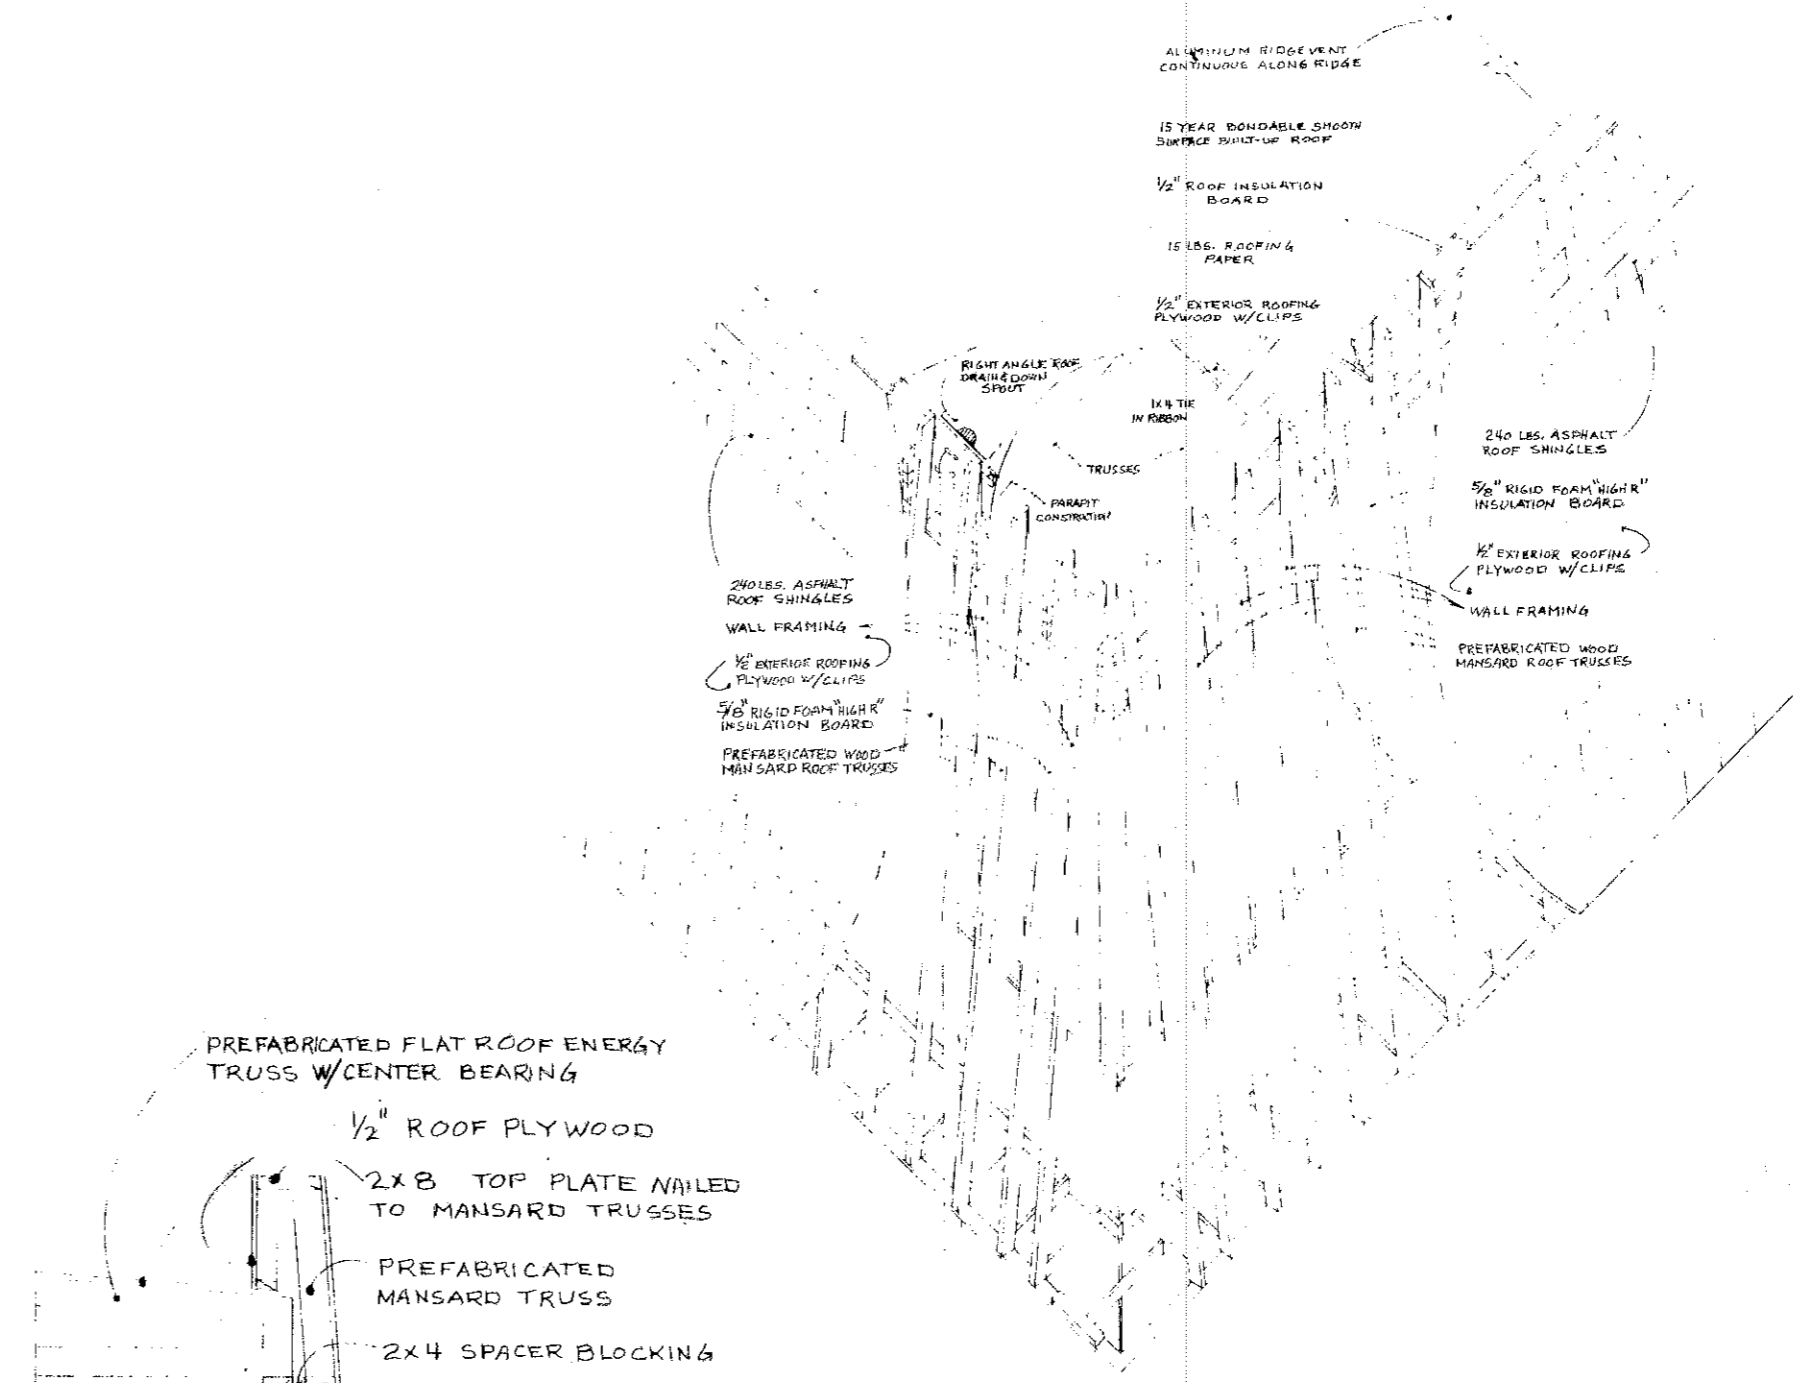 ALUMINUM RIDGE VENT
CONTINUOUS ALONG RIDGE
15 YEAR BONDABLE SMOOTH
SURFACE BUILT-UP ROOF
1/2" ROOF INSULATION
BOARD
15 LBS. ROOFING
PAPER
1/2" EXTERIOR ROOFING
PLYWOOD W/CLIPS
RIGHT ANGLE ROOF
DRAIN & DOWN
SPOUT
1X4 TIE
IN RIBBON
TRUSSES
PARAPIT
CONSTRUCTION
240 LBS. ASPHALT
ROOF SHINGLES
5/8" RIGID FOAM "HIGH R"
INSULATION BOARD
1/2" EXTERIOR ROOFING
PLYWOOD W/CLIPS
WALL FRAMING
PREFABRICATED WOOD
MANSARD ROOF TRUSSES
240 LBS. ASPHALT
ROOF SHINGLES
WALL FRAMING
1/2" EXTERIOR ROOFING
PLYWOOD W/CLIPS
5/8" RIGID FOAM "HIGH R"
INSULATION BOARD
PREFABRICATED WOOD
MANSARD ROOF TRUSSES
PREFABRICATED FLAT ROOF ENERGY
TRUSS W/CENTER BEARING
1/2" ROOF PLYWOOD
2X8 TOP PLATE NAILED
TO MANSARD TRUSSES
PREFABRICATED
MANSARD TRUSS
2X4 SPACER BLOCKING